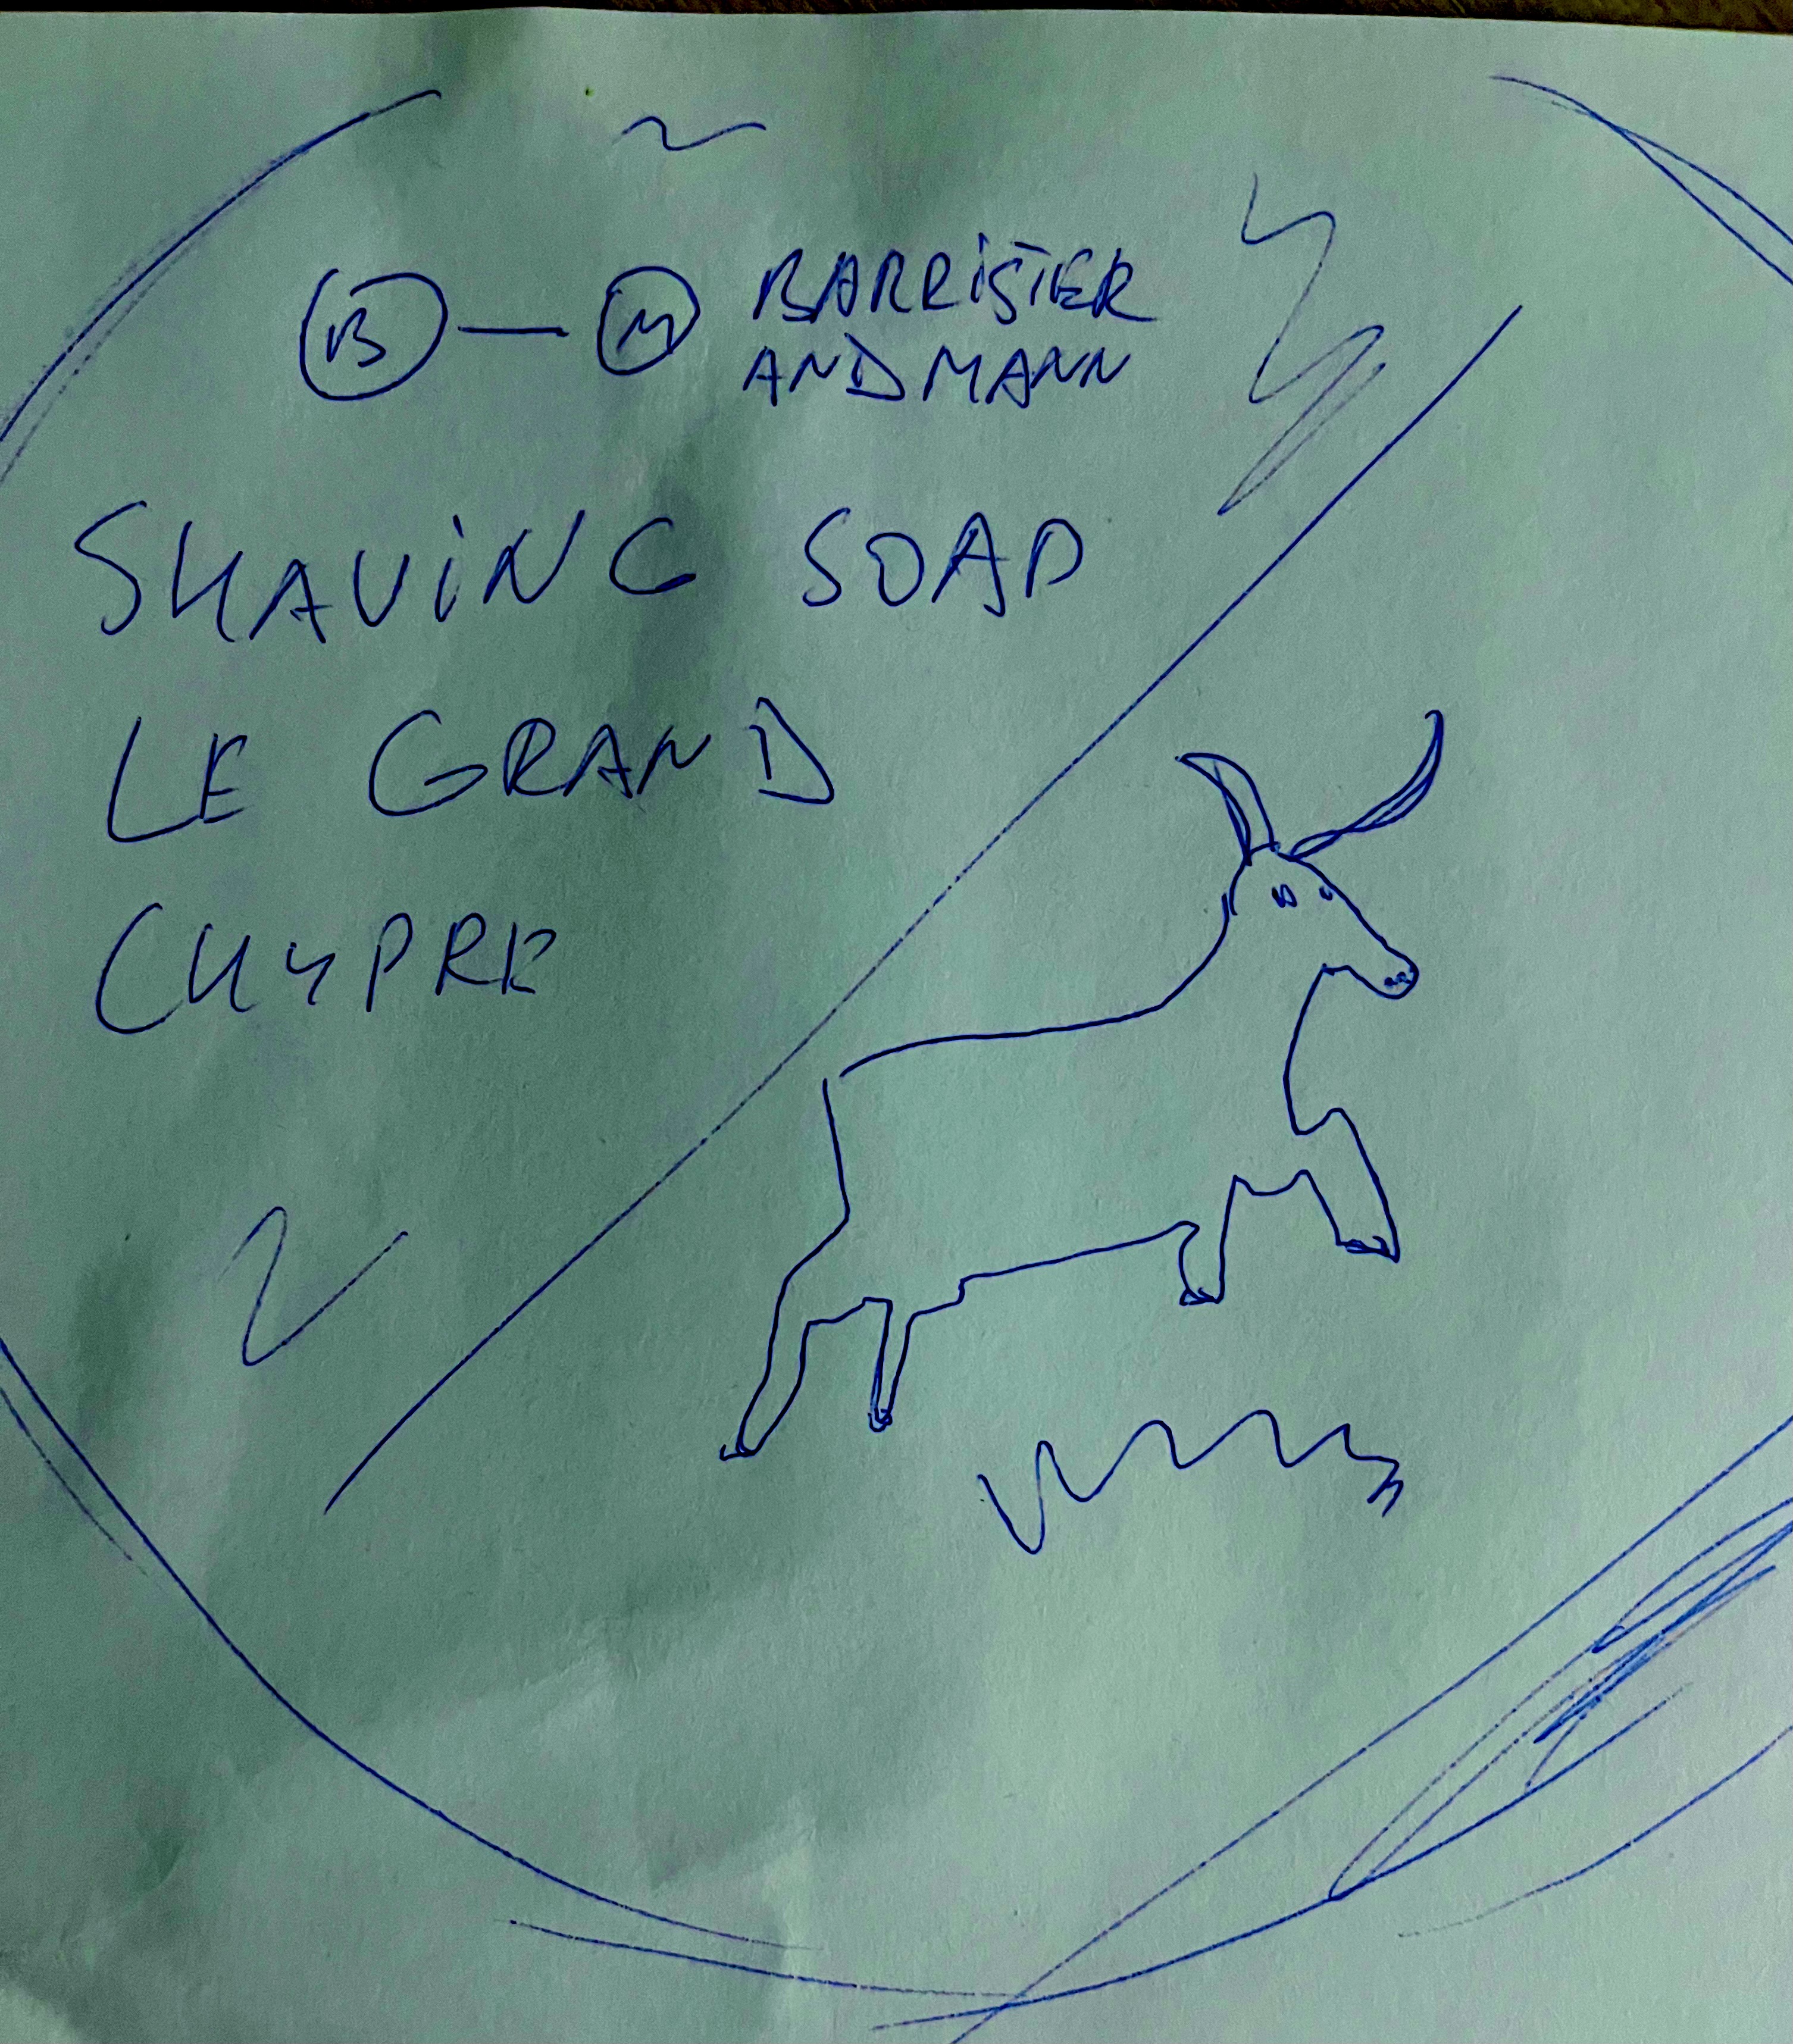 B — M BARRISTER
AND MANN
SHAVING SOAP
LE GRAND
CHYPRE